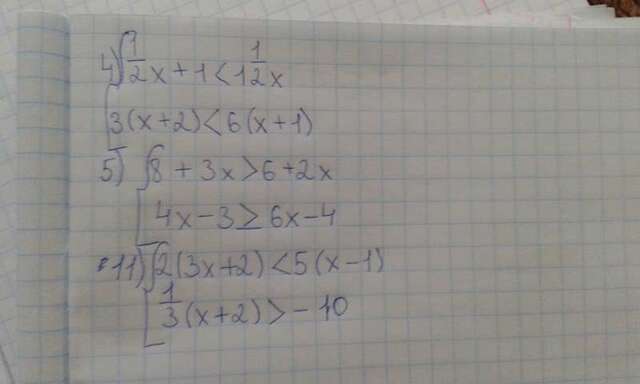 4) 1/2x+1<1 1/2x
3(x+2)<6(x+1)
5) 8+3x>6+2x
4x-3≥6x-4
11) 2(3x+2)<5(x-1)
1/3(x+2)>-10